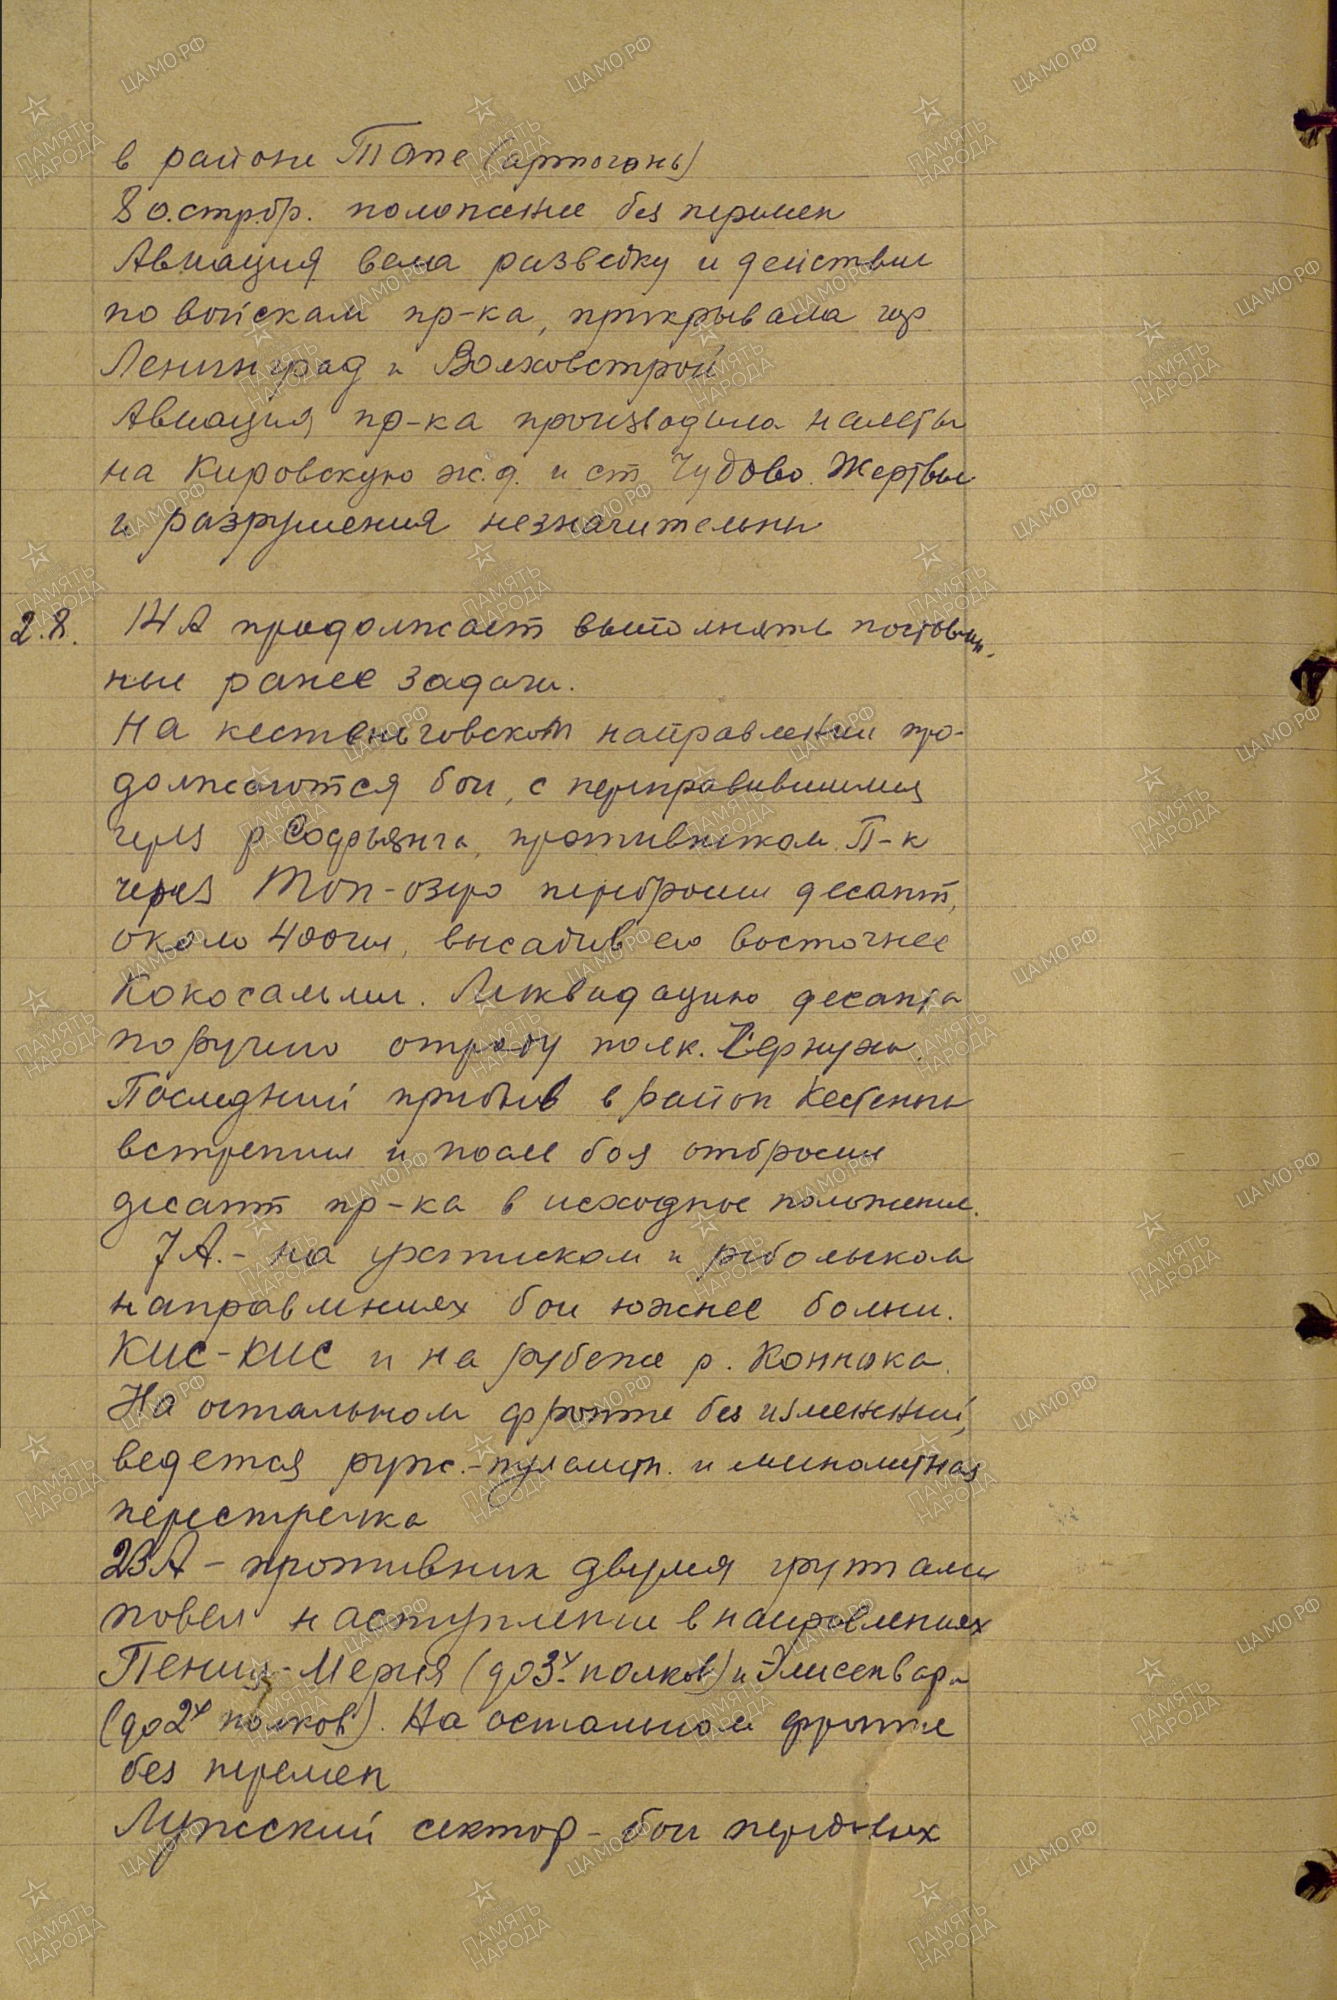 в районе Тапе (артогонь)
8 о.стр.бр. положение без перемен
Авиация вела разведку и действия
по войскам пр-ка, прикрывала гор
Ленинград и Волховстрой
Авиация пр-ка производила налеты
на Кировскую ж.д. и ст Чудово. Жертвы
и разрушения незначительны
2.8. 14 А продолжает выполнять поставлен-
ные ранее задачи.
На кестеньговском направлении про-
должаются бои, с переправившимся
через р Софьянга, противником. П-к
через Топ-озеро перебросил десант,
около 400 чел, высадив его восточнее
Кокосальми. Ликвидацию десанта
поручено отряду полк. Чернухи.
Последний прибыв в район Кестеньги
встретил и после боя отбросил
десант пр-ка в исходное положение.
7 А. - на ухтинском и ребольском
направлениях бои южнее болни.
КИС-КИС и на рубеже р. Коннака.
На остальном фронте без изменений,
ведется руж.-пулеметн. и минометная
перестрелка
23 А - противник двумя группами
повел наступление в направлениях
Пениц-Мерия (до 3х полков) и Элисенвара
(до 2х полков). На остальном фронте
без перемен
Лужский сектор - бои передовых
ПАМЯТЬ НАРОДА
ЦАМО.РФ